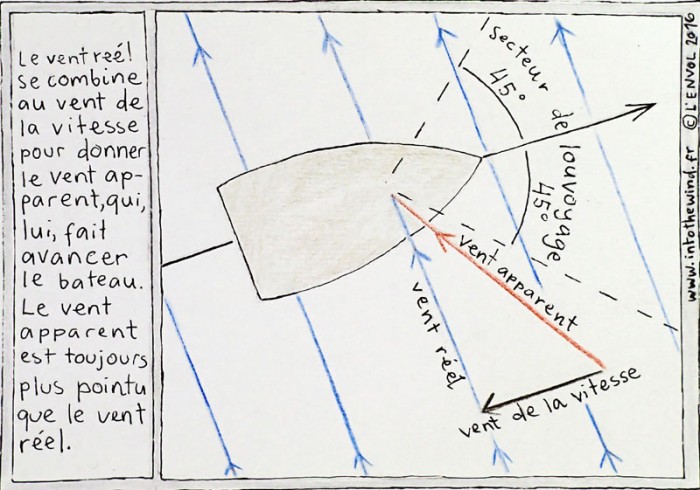 Le vent réel
se combine
au vent de
la vitesse
pour donner
le vent ap-
parent, qui,
lui, fait
avancer
le bateau.
Le vent
apparent
est toujours
plus pointu
que le vent
réel.
secteur de louvoyage
45°
45°
vent apparent
vent réel
vent de la vitesse
www.intothewind.fr © L'ENVOL 2016